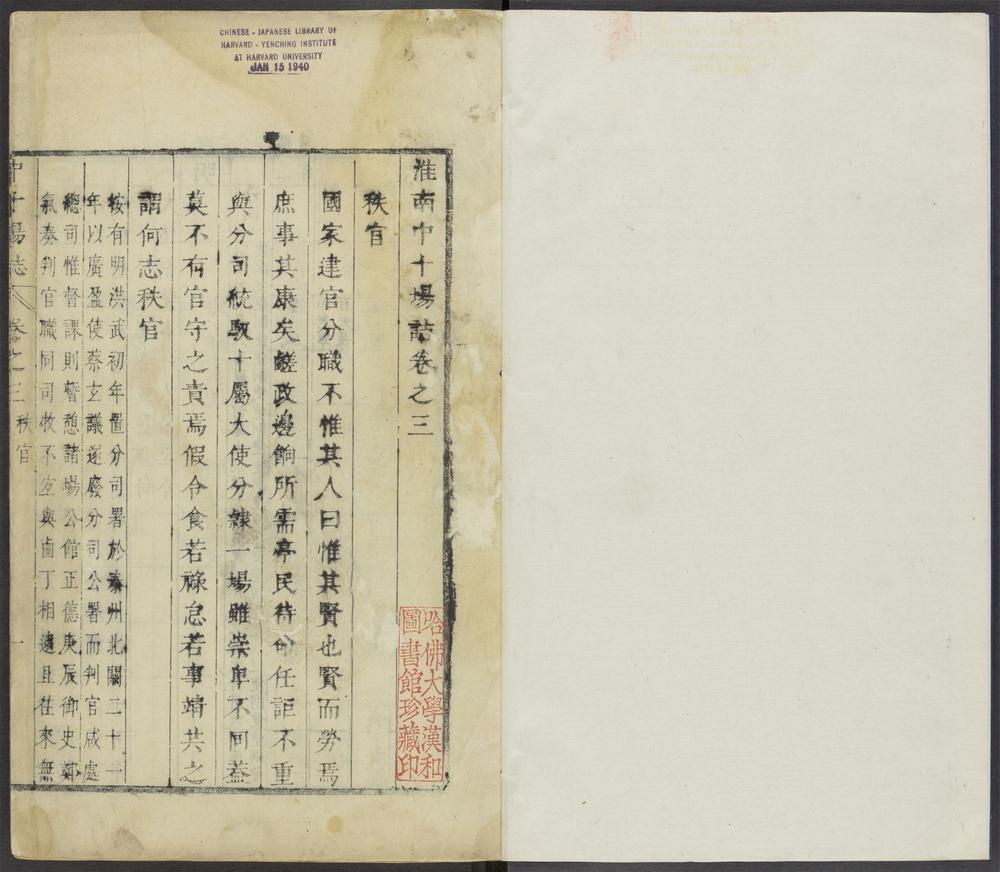 CHINESE - JAPANESE LIBRARY OF
HARVARD - YENCHING INSTITUTE
AT HARVARD UNIVERSITY
JAN 15 1940
淮南中十場誌卷之三
秩官
國家建官分職不惟其人曰惟其賢也賢而勞焉
庶事其康矣鹺政邊餉所需亭民待命任詎不重
與分司統馭十屬大使分隸一場雖崇卑不同蓋
莫不有官守之責焉假令食若祿怠若事靖共之
謂何志秩官
按有明洪武初年置分司署於泰州北關二十一
年以廣盈使蔡玄議遂廢分司公署而判官咸處
總司惟督課則暫憩諸場公館正德庚辰御史
氣奏判官職同司牧不宜與鹵丁相遠且往來無
中十場誌 卷之三 秩官 一
哈佛大學漢和
圖書館珍藏印